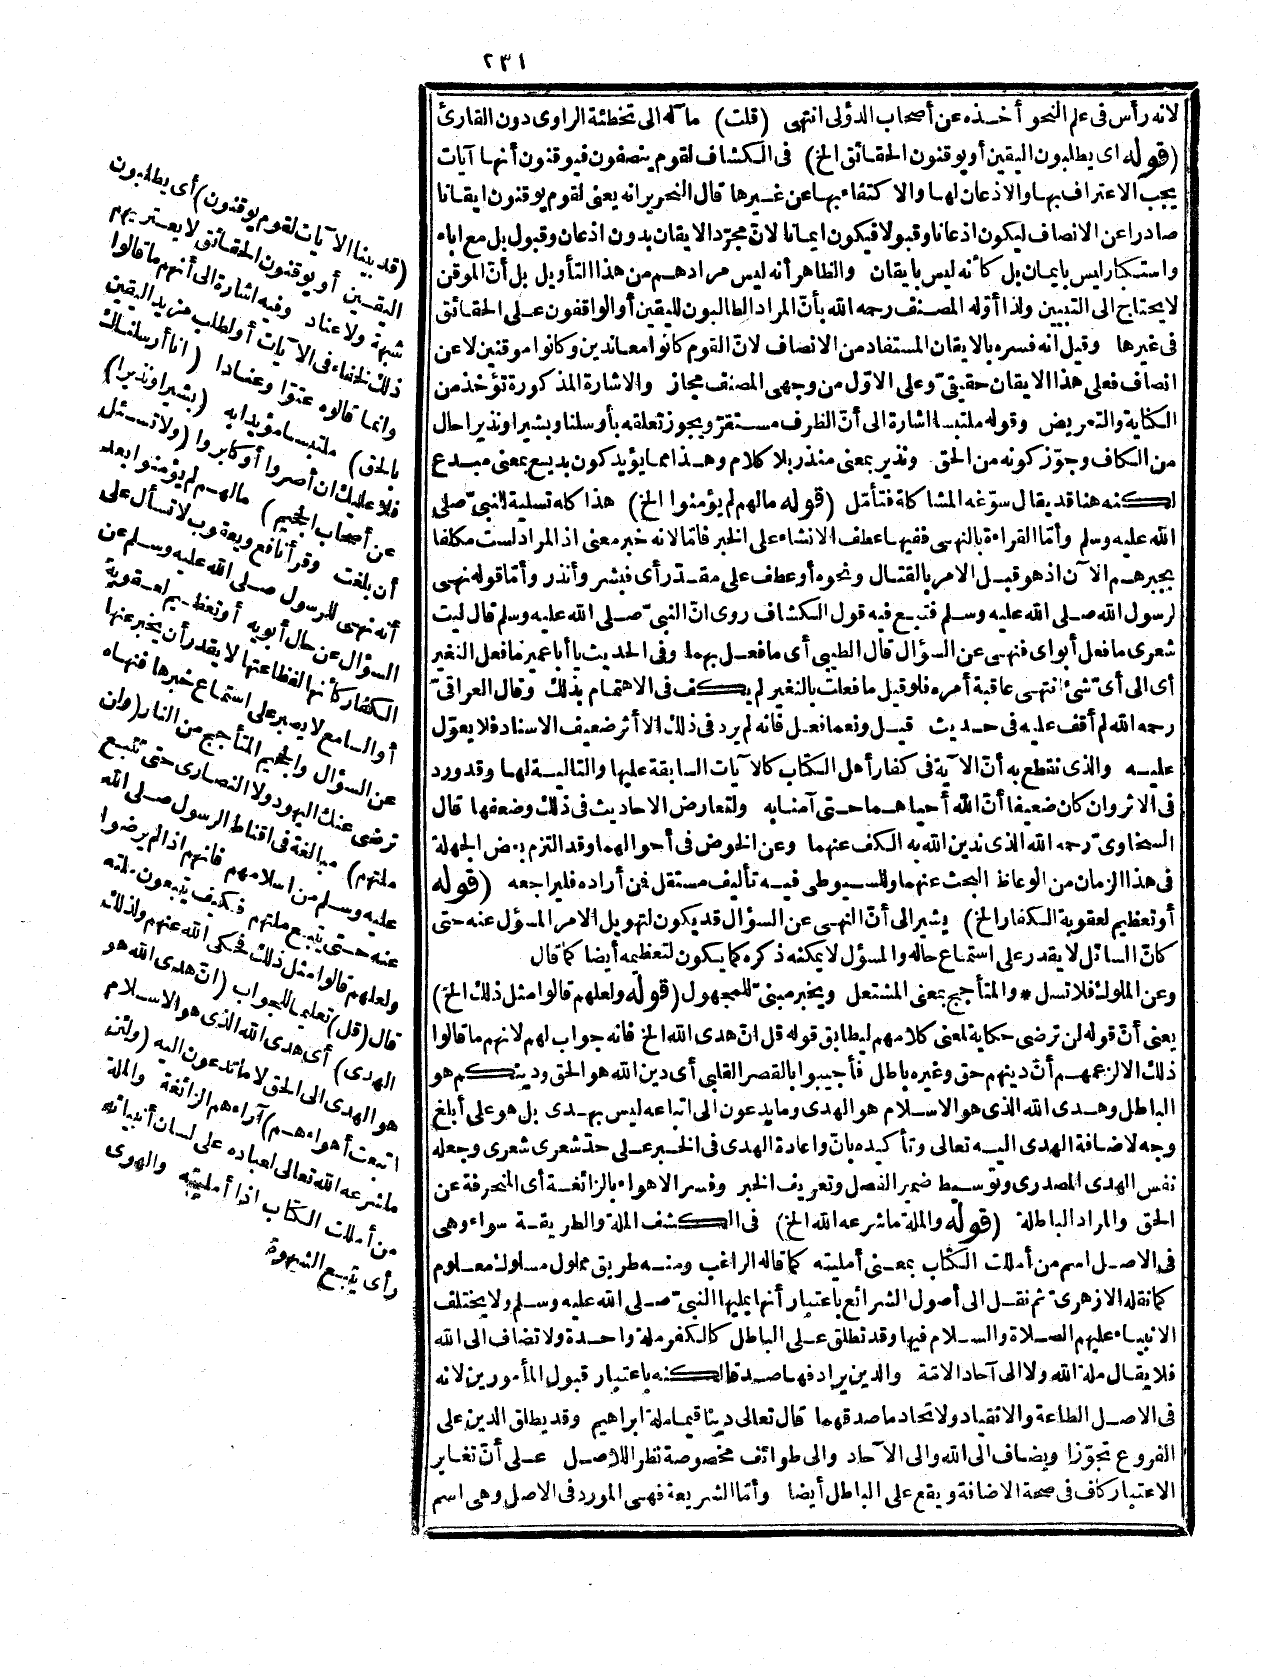 ٢٣١
لانه رأس فى علم النحو أخذه عن أصحاب الدؤلى انتهى (قلت) ما له الى تخطئة الراوى دون القارئ
(قوله اى يطلبون اليقين أو يوقنون الحقائق الخ) فى الكشاف لقوم ينصفون فيوقنون أنها آيات
يجب الاعتراف بها والاذعان لها والاكتفاء بها عن غيرها قال النحرير انه يعنى لقوم يوقنون ايقانا
صادرا عن الانصاف ليكون اذعانا وقبولا فيكون ايمانا لانّ مجرّد الايقان بدون اذعان وقبول بل مع اباء
واستكبار ليس بايمان بل كأنه ليس بايقان والظاهر أنه ليس مرادهم من هذا التأويل بل أنّ الموقن
لا يحتاج الى التبيين ولذا أوّله المصنف رحمه الله بأنّ المراد الطالبون لليقين أو الواقفون على الحقائق
فى غيرها وقيل انه فسره بالايقان المستفاد من الانصاف لانّ القوم كانوا معاندين وكانوا موقنين لا عن
انصاف فعلى هذا الايقان حقيقىّ وعلى الاوّل من وجهى المصنف مجاز والاشارة المذكورة تؤخذ من
الكناية والتعريض وقوله ملتبسا اشارة الى أنّ الظرف مستقرّ ويجوز تعلقه بأرسلنا وبشيرا ونذيرا حال
من الكاف وجوّز كونه من الحق ونذير بمعنى منذر بلا كلام وهذا مما يؤيد كون بديع بمعنى مبدع
لكنه هنا قد يقال سوّغه المشاكلة فتأمّل (قوله مالهم لم يؤمنوا الخ) هذا كله تسلية للنبىّ صلى
الله عليه وسلم وأمّا القراءة بالنهى ففيها عطف الانشاء على الخبر فامّا لانه خبر معنى اذ المراد لست مكلفا
بجبرهم الآن اذ هو قبل الامر بالقتال ونحوه أو عطف على مقدّر أى فبشر وأنذر وأمّا قوله نهى
لرسول الله صلى الله عليه وسلم فتبع فيه قول الكشاف روى انّ النبىّ صلى الله عليه وسلم قال ليت
شعرى ما فعل أبواى فنهى عن السؤال قال الطيبى أى ما فعل بهما وفى الحديث يا أبا عمير ما فعل النغير
أى الى أىّ شئ انتهى عاقبة أمره فلو قيل ما فعلت بالنغير لم يكف فى الاهتمام بذلك وقال العراقىّ
رحمه الله لم أقف عليه فى حديث قيل ونعما فعل فانه لم يرد فى ذلك الا أثر ضعيف الاسناد فلا يعوّل
عليه والذى نقطع به أنّ الآية فى كفار أهل الكتاب كالآيات السابقة عليها والتالية لها وقد ورد
فى الاثر وان كان ضعيفا أنّ الله أحياهما حتى آمنا به ولتعارض الاحاديث فى ذلك وضعفها قال
السخاوىّ رحمه الله الذى ندين الله به الكف عنهما وعن الخوض فى أحوالهما وقد التزم بعض الجهلة
فى هذا الزمان من الوعاظ البحث عنهما وللسيوطى فيه تأليف مستقل فمن أراده فليراجعه (قوله
أو تعظيم لعقوبة الكفار الخ) يشير الى أنّ النهى عن السؤال قد يكون لتهويل الامر المسؤل عنه حتى
كانّ السائل لا يقدر على استماع حاله والمسؤل لا يمكنه ذكره كما يكون لتعظيمه أيضا كما قال
وعن الملوك فلا تسل * والمتأجج بمعنى المشتعل ويخبر مبنىّ للمجهول (قوله ولعلهم قالوا مثل ذلك الخ)
يعنى أنّ قوله لن ترضى حكاية لمعنى كلامهم ليطابق قوله قل انّ هدى الله الخ فانه جواب لهم لانهم ما قالوا
ذلك الا لزعمهم أنّ دينهم حق وغيره باطل فأجيبوا بالقصر القلبى أى دين الله هو الحق ودينكم هو
الباطل وهدى الله الذى هو الاسلام هو الهدى وما يدعون الى اتباعه ليس بهدى بل هو على أبلغ
وجه لاضافة الهدى اليه تعالى وتأكيده بانّ واعادة الهدى فى الخبر على حدّ شعرى شعرى وجعله
نفس الهدى المصدرى وتوسيط ضمير الفصل وتعريف الخبر وفسر الاهواء بالزائغة أى المنحرفة عن
الحق والمراد الباطلة (قوله والملة ما شرعه الله الخ) فى الكشف الملة والطريقة سواء وهى
فى الاصل اسم من أمللت الكتاب بمعنى أمليته كما قاله الراغب ومنه طريق مملول مسلوك معلوم
كما نقله الازهرىّ ثم نقل الى أصول الشرائع باعتبار أنها يمليها النبىّ صلى الله عليه وسلم ولا يختلف
الانبياء عليهم الصلاة والسلام فيها وقد تطلق على الباطل كالكفر ملة واحدة ولا تضاف الى الله
فلا يقال ملة الله ولا الى آحاد الامّة والدين يرادفها صدقا لكنه باعتبار قبول المأمورين لانه
فى الاصل الطاعة والانقياد ولاتحاد ما صدقهما قال تعالى دينا قيما ملة ابراهيم وقد يطلق الدين على
الفروع تجوّزا ويضاف الى الله والى الآحاد والى طوائف مخصوصة نظر اللاصل على أنّ تغاير
الاعتبار كاف فى صحة الاضافة ويقع على الباطل أيضا وأمّا الشريعة فهى المورد فى الاصل وهى اسم
(قد بينا الآيات لقوم يوقنون) أى يطلبون
اليقين أو يوقنون الحقائق لا يعتريهم
شبهة ولا عناد وفيه اشارة الى أنهم ما قالوا
ذلك لخفاء فى الآيات أو لطلب مزيد اليقين
وانما قالوه عتوّا وعنادا (انا أرسلناك
بالحق) ملتبسا مؤيدا به (بشيرا ونذيرا)
فلا عليك ان أصروا أو كابروا (ولا تسئل
عن أصحاب الجحيم) مالهم لم يؤمنوا بعد
أن بلغت وقرأ نافع ويعقوب لا تسأل على
أنه نهى للرسول صلى الله عليه وسلم عن
السؤال عن حال أبويه أو تعظيم لعقوبة
الكفار كأنها لفظاعتها لا يقدر أن يخبر عنها
أو السامع لا يصبر على استماع خبرها فنهاه
عن السؤال والجحيم المتأجج من النار (ولن
ترضى عنك اليهود ولا النصارى حتى تتبع
ملتهم) مبالغة فى اقناط الرسول صلى الله
عليه وسلم من اسلامهم فانهم اذا لم يرضوا
عنه حتى يتبع ملتهم فكيف يتبعون ملته
ولعلهم قالوا مثل ذلك فحكى الله عنهم ولذلك
قال (قل) تعليما للجواب (انّ هدى الله هو
الهدى) أى هدى الله الذى هو الاسلام
هو الهدى الى الحق لا ما تدعون اليه (ولئن
اتبعت أهواءهم) آراءهم الزائغة والملة
ما شرعه الله تعالى لعباده على لسان أنبيائه
من أمللت الكتاب اذا أمليته والهوى
رأى يتبع الشهوة